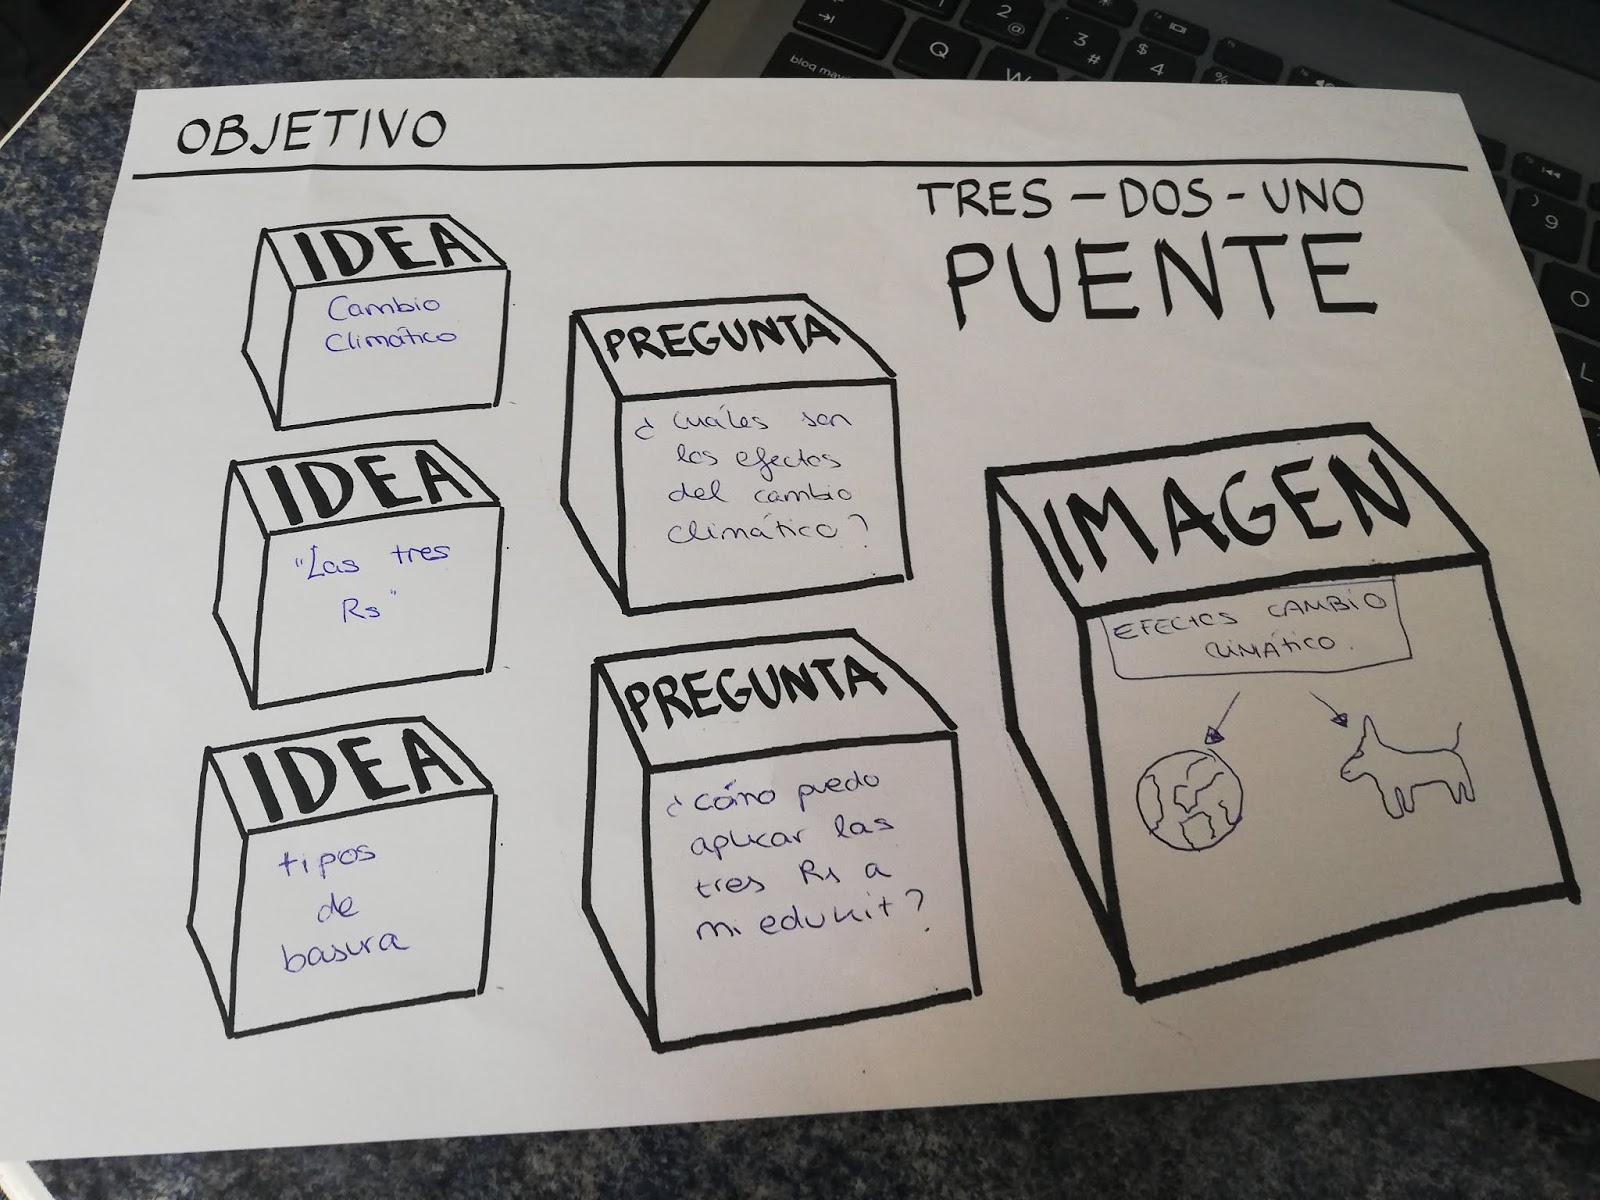 OBJETIVO
TRES - DOS - UNO
PUENTE
IDEA
Cambio
Climático
IDEA
"Las tres
Rs"
IDEA
tipos
de
basura
PREGUNTA
¿Cuáles son
los efectos
del cambio
climático?
PREGUNTA
¿Cómo puedo
aplicar las
tres Rs a
mi edukit?
IMAGEN
EFECTOS CAMBIO
CLIMÁTICO.
bloq mayús
Q
W
1
2
@
3
#
$
4
%
)
9
O
L